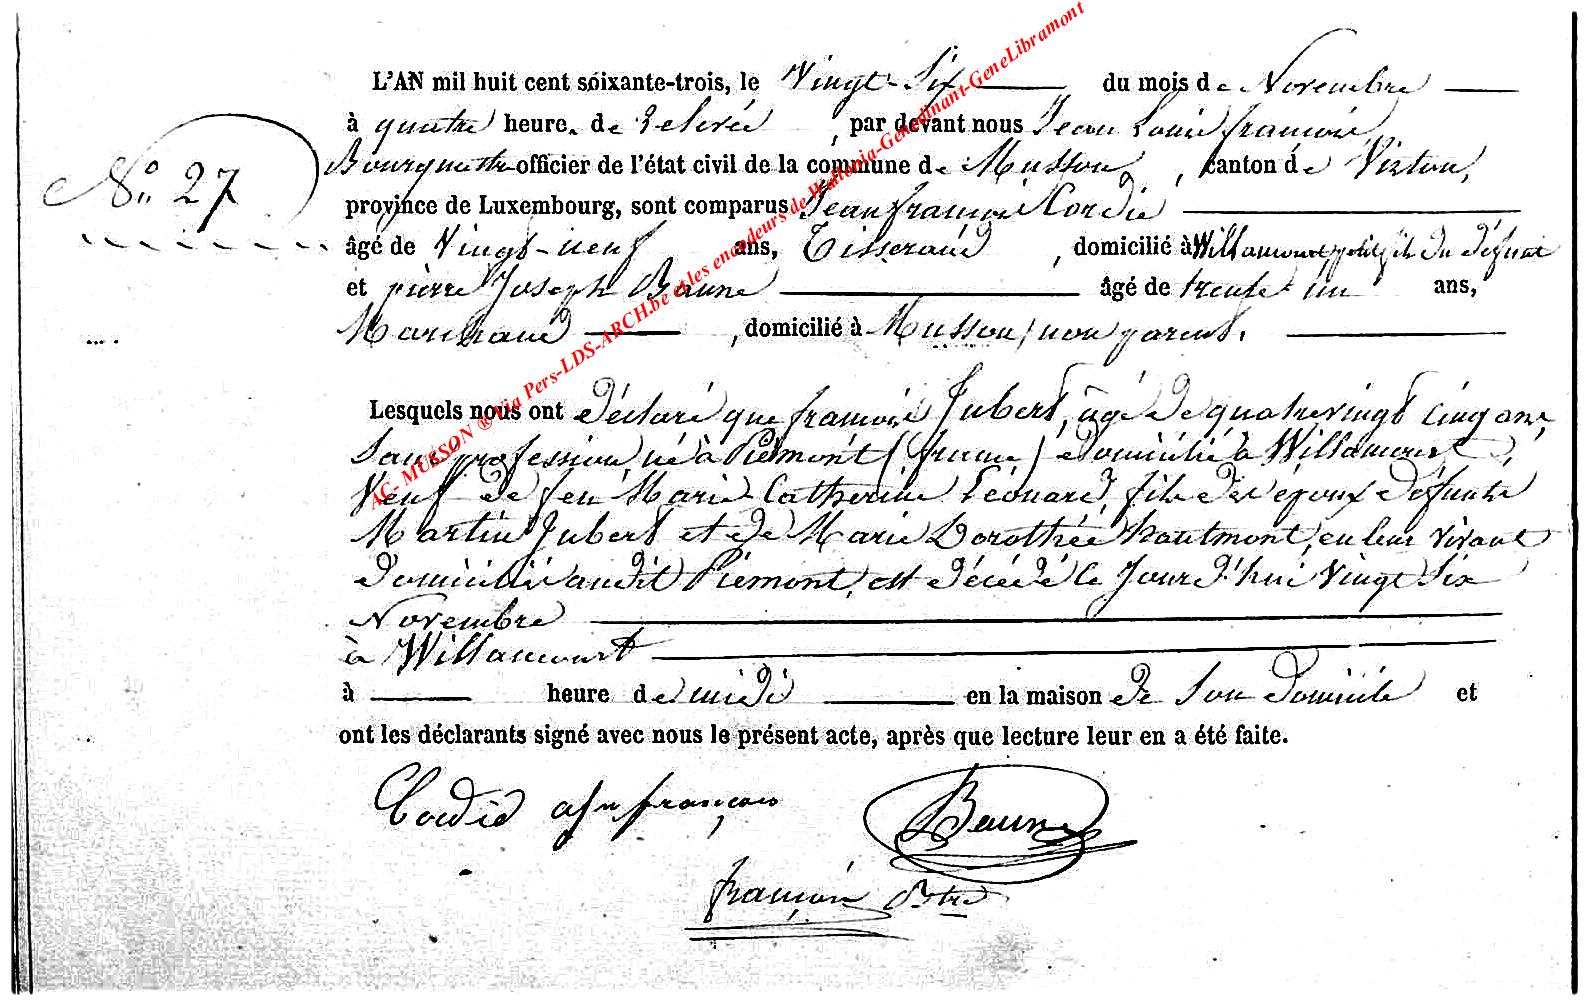 L'AN mil huit cent soixante-trois, le Vingt-Six du mois de Novembre
à quatre heure. de relevée, par devant nous Jean Louis françois,
Bourguette officier de l'état civil de la commune de Musson, canton de Virton,
N° 27
province de Luxembourg, sont comparus Jean françois Cordié
âgé de Vingt-neuf ans, Tisserand, domicilié à Willancourt, petit fils du défunt
et pierre Joseph Baune âgé de trente un ans,
Maréchand, domicilié à Musson, non parent.
Lesquels nous ont déclaré que françois Jubert, âgé de quatrevingt cinq ans,
Sans profession, né à Piémont (france) domicilié à Willancourt,
Veuf de feu Marie Catherine Léonard, fils des époux défunts
Martin Jubert et de Marie Dorothée hautmont, en leur vivant
domiciliés audit Piémont, est décédé le Jourd'hui Vingt Six
Novembre
à Willancourt
à heure de midi en la maison de Son Domicile et
ont les déclarants signé avec nous le présent acte, après que lecture leur en a été faite.
Cordié françois
Baune
françois
AC- MUSSON ® Via Pers-LDS-ARCH.be et les encodeurs de Wallonia-Genedinant-GeneLibramont